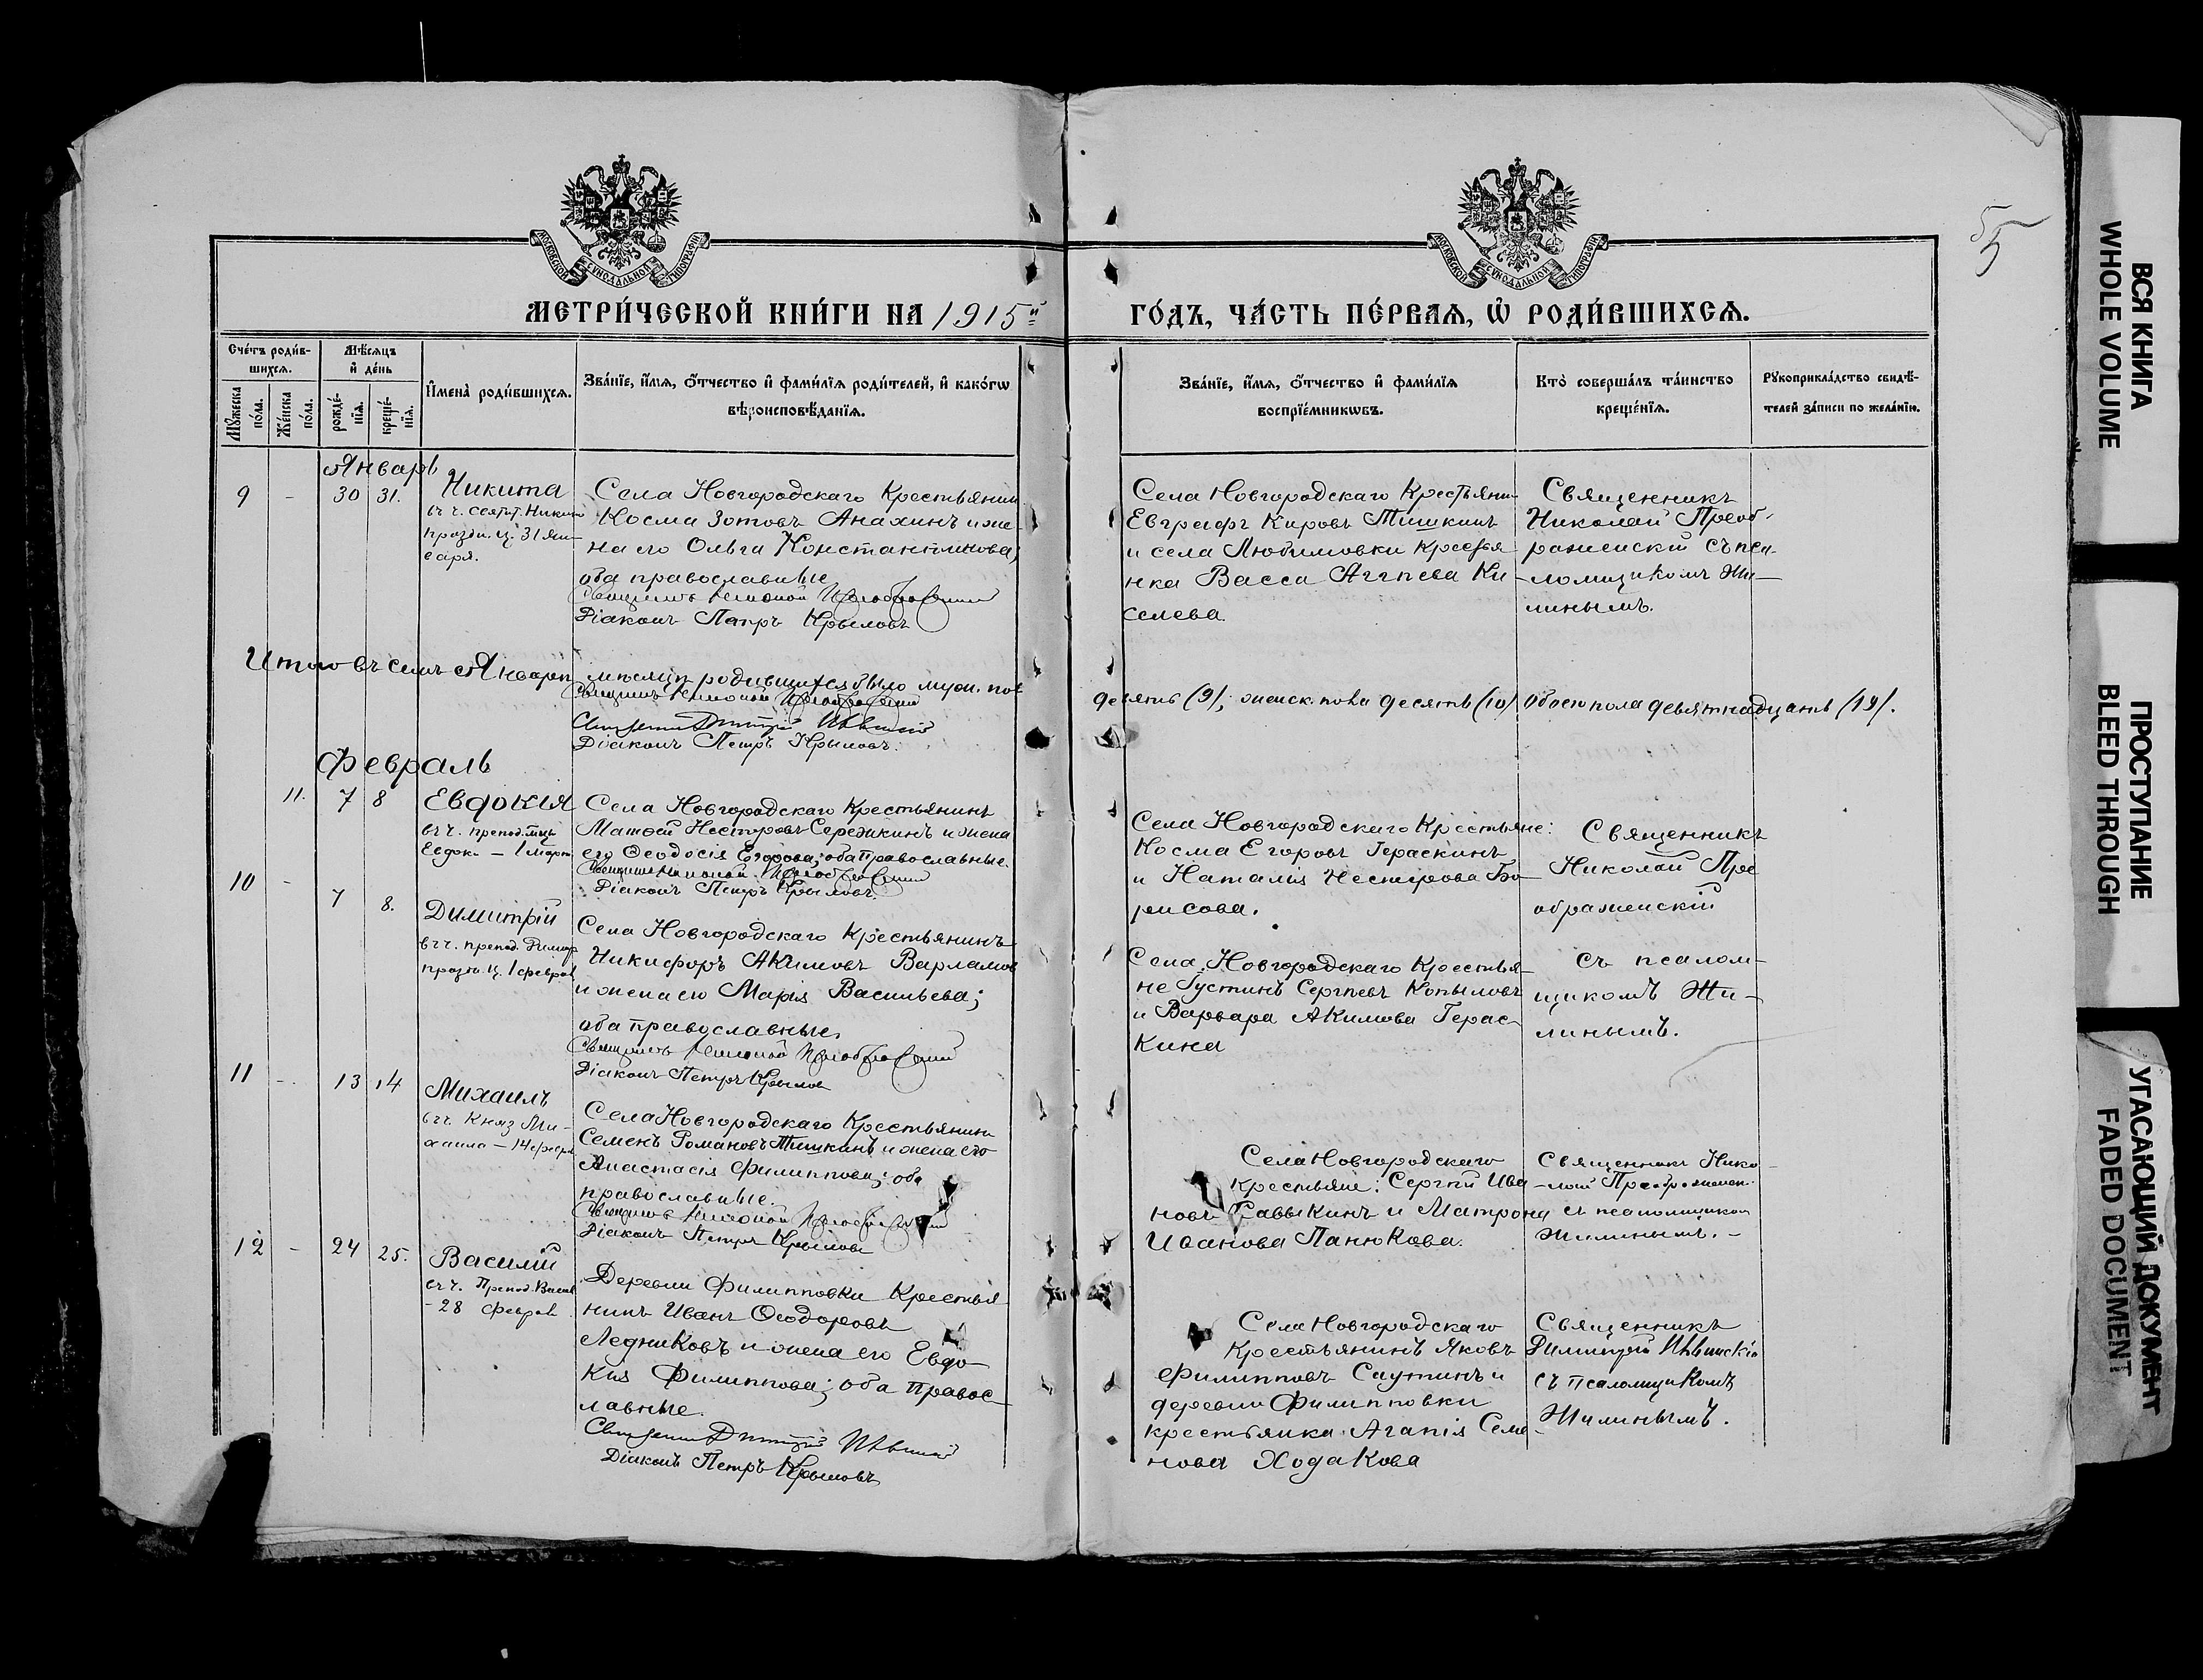 55
МОСКОВСКОЙ СУНОДАЛЬНОЙ ТИПОГРАФІИ
МОСКОВСКОЙ СУНОДАЛЬНОЙ ТИПОГРАФІИ
МЕТРИ́ЧЕСКОЙ КНИ́ГИ НА 1915й ГО́ДЪ, ЧА́СТЬ ПЕ́РВАЯ, Ѡ РОДИ́ВШИХСЯ.
Сче́тъ роди́в-
шихся.
Му́жеска по́ла.
Же́нска по́ла.
Мѣ́сяцъ
и҆ де́нь
рожде́-
нїя.
креще́-
нїя.
И҆мена̀ роди́вшихся.
Зва́нїе, и҆́мя, ѻ҆́тчество и҆ фами́лїя роди́телей, и҆ како́гѡ
вѣроисповѣ́данїя.
Зва́нїе, и҆́мя, ѻ҆́тчество и҆ фами́лїя
воспрїе́мникѡвъ.
Кто̀ соверша́лъ та́инство
креще́нїя.
Рукоприкла́дство свидѣ́-
телей за́писи по жела́нїю.
Январь
9 - 30 31.
Никита
въ ч. святит. Никит
праздн. ц. 31 Ян-
варя.
Села Новгородскаго Крестьянин
Косма Зотовъ Анахинъ и же-
на его Ольга Константинова;
оба православные
Священникъ Николай Преображенский
Діаконъ Петръ Крыловъ
Села Новгородскаго Крестьяни-
Евграфъ Кировъ Тишкинъ
и села Любимовки крестья-
нка Васса Аггпева Ки-
селева.
Священникъ
Николай Преоб-
раженскій съ пса-
ломщикомъ Жи-
линымъ.
Итого въ семъ Январѣ мѣсяцѣ родившихся было муж. пол
девять (9); женск. пола десять (10) Обоего пола девятнадцать (19).
Священникъ Николай Преображенский
Діаконъ Петръ Крыловъ.
Февраль
11. 7 8
Евдокія
въ ч. препод. мцы
Евдок. - 1 март
Села Новгородскаго Крестьянинъ
Матѳей Несторовъ Середкинъ и жена
его Ѳеодосія Егорова; оба православные.
Священникъ Николай Преображенский
Діаконъ Петръ Крыловъ.
Села Новгородскаго Крестьяне:
Косма Егоровъ Гераскинъ
и Наталія Нестерова Бо-
рисова.
Священникъ
Николай Пре
ображенскій
съ псалом-
щикомъ Жи-
линымъ.
10 - 7 8.
Димитрій
въ ч. препод. Димитр
праздн. ц. 1 феврал
Села Новгородскаго Крестьянинъ
Никифоръ Акимовъ Варламов
и жена его Марія Васильева;
оба православные,
Священникъ Николай Преображенский
Діаконъ Петръ Крылов
Села Новгородскаго Крестья-
не Густинъ Сергѣевъ Копыловъ
и Варвара Акимова Герас-
кина
11 - 13 14
Михаилъ
въ ч. Княз Ми-
хаила - 14 февра
Села Новгородскаго Крестьянин
Семенъ Романовъ Тишкинъ и жена его
Анастасія Филиппова; оба
православные.
Священникъ Николай Преображенский
Діаконъ Петръ Крыловъ
Села Новгородскаго
крестьяне: Сергѣй Ива
новъ Саввыкинъ и Матрона
Иванова Панюкова.
Священникъ Нико-
-лай Преображенск.
съ псаломщиком
Жилинымъ. -
12 - 24 25.
Василій
въ ч. Препод. Васил
- 28 феврал
Деревни Филипповки Крестья-
нинъ Иванъ Ѳеодоровъ
Ледниковъ и жена его Евдо-
кія Филиппова; оба правос-
лавные.
Діаконъ Петръ Крыловъ
Села Новгородскаго
Крестьянинъ Яковъ
Филипповъ Саутинъ и
деревни Филипповки
крестьянка Агапія Семе-
нова Ходакова
Священникъ
Димитрій
съ псаломщикомъ
Жилинымъ.
ВСЯ КНИГА
WHOLE VOLUME
ПРОСТУПАНИЕ
BLEED THROUGH
УГАСАЮЩИЙ ДОКУМЕНТ
FADED DOCUMENT